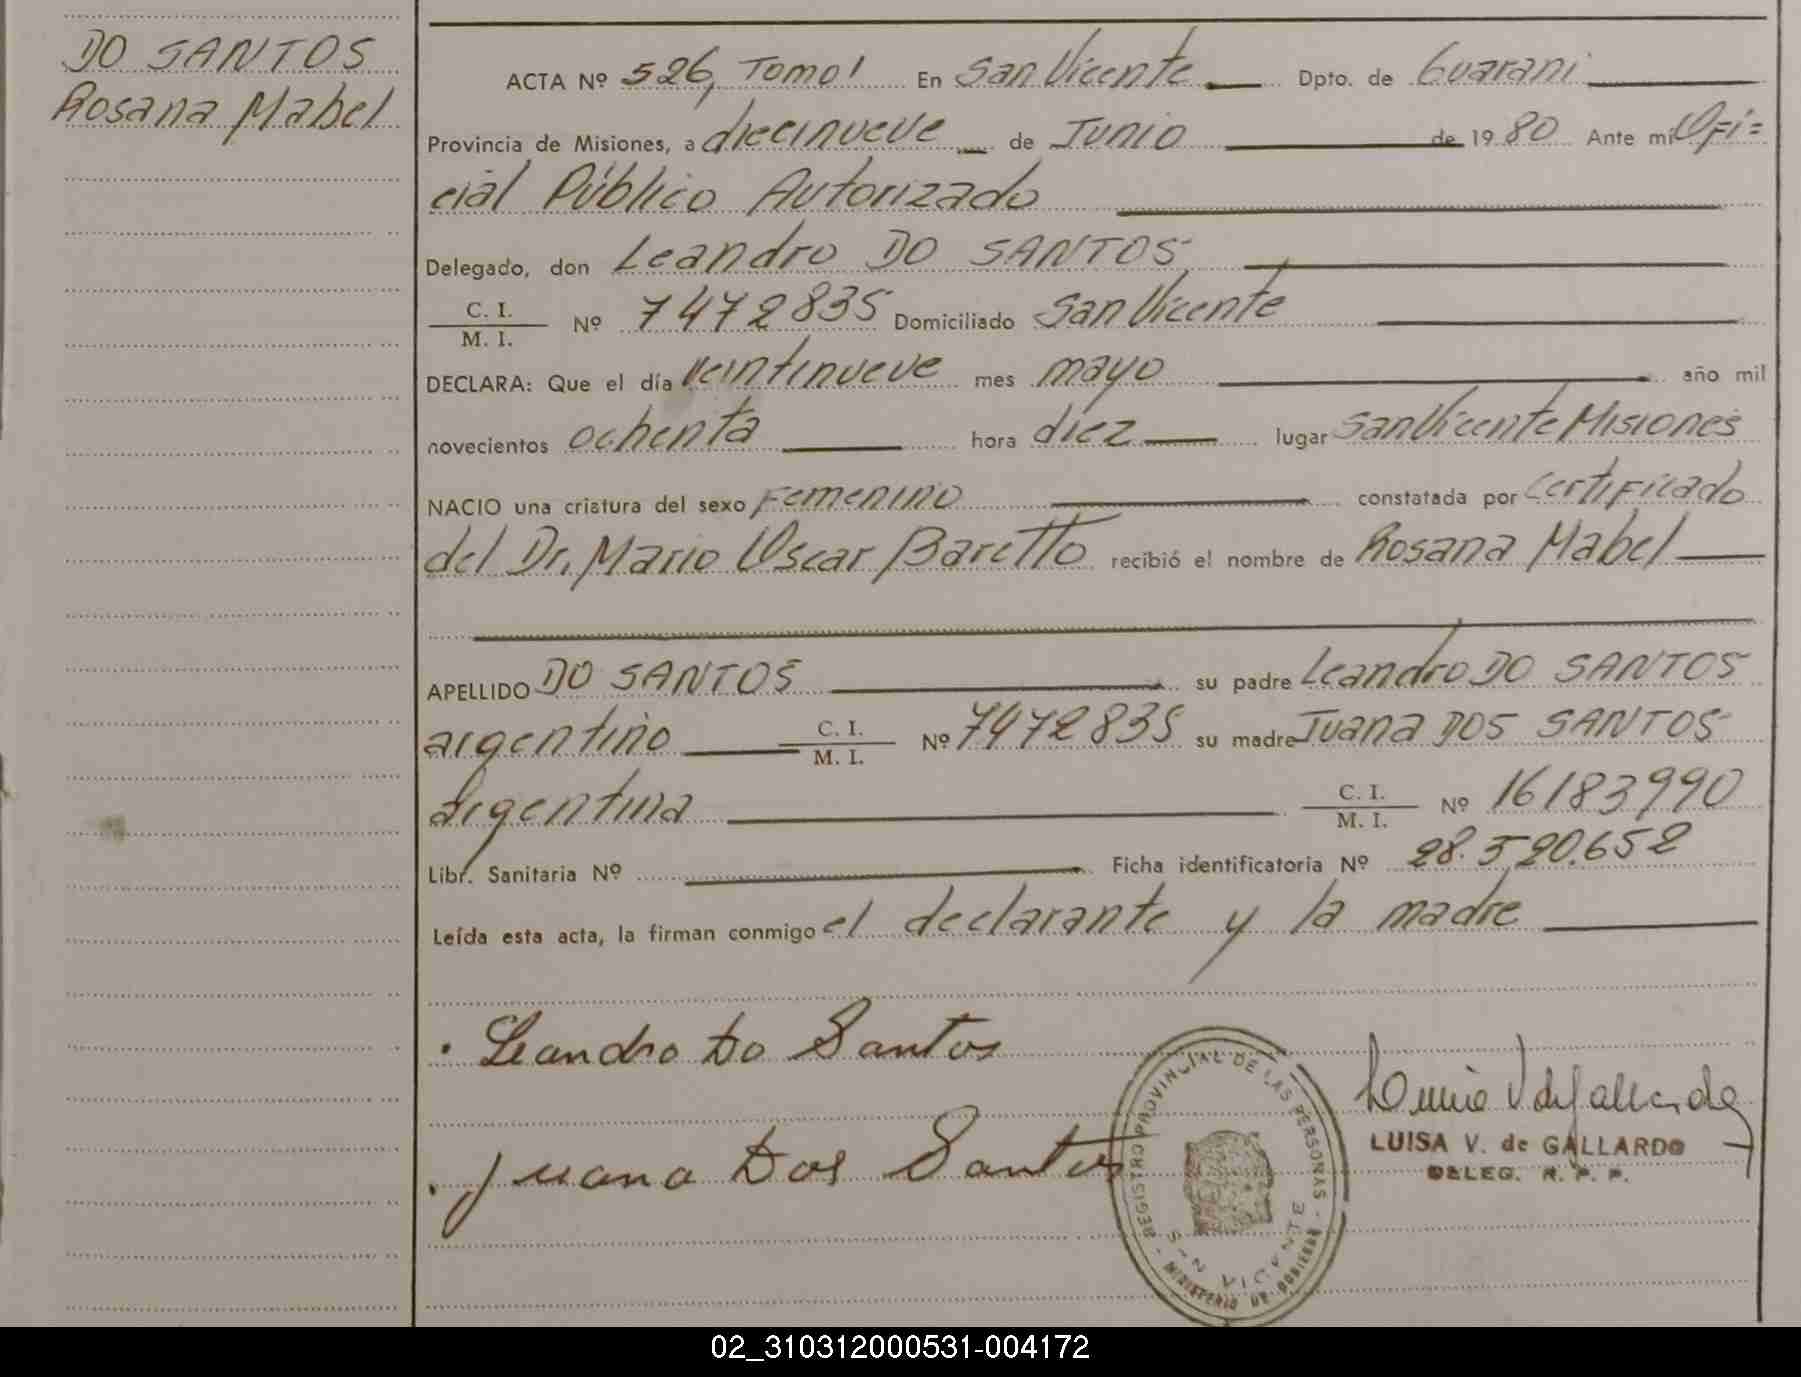 DO SANTOS
Rosana Mabel
ACTA Nº 526, Tomo I En San Vicente Dpto. de Guarani
Provincia de Misiones, a diecinueve de Junio de 1980 Ante mi Ofi=
cial Público Autorizado
Delegado, don Leandro DO SANTOS
C. I.
M. I. Nº 7472835 Domiciliado San Vicente
DECLARA: Que el día veintinueve mes mayo año mil
novecientos ochenta hora diez lugar San Vicente Misiones
NACIO una criatura del sexo Femenino constatada por Certificado
del Dr. Mario Oscar Baretto recibió el nombre de Rosana Mabel
APELLIDO DO SANTOS su padre Leandro DO SANTOS
argentino C. I.
M. I. Nº 7472835 su madre Juana DOS SANTOS
argentina C. I.
M. I. Nº 16183990
Libr. Sanitaria Nº Ficha identificatoria Nº 28.520.652
Leída esta acta, la firman conmigo el declarante y la madre
Leandro Do Santos
Juana Dos Santos
REGISTRO PROVINCIAL DE LAS PERSONAS
SAN VICENTE
MINISTERIO DE GOBIERNO
Luisa V de Gallardo
LUISA V. de GALLARDO
DELEG. R. P. P.
02_310312000531-004172